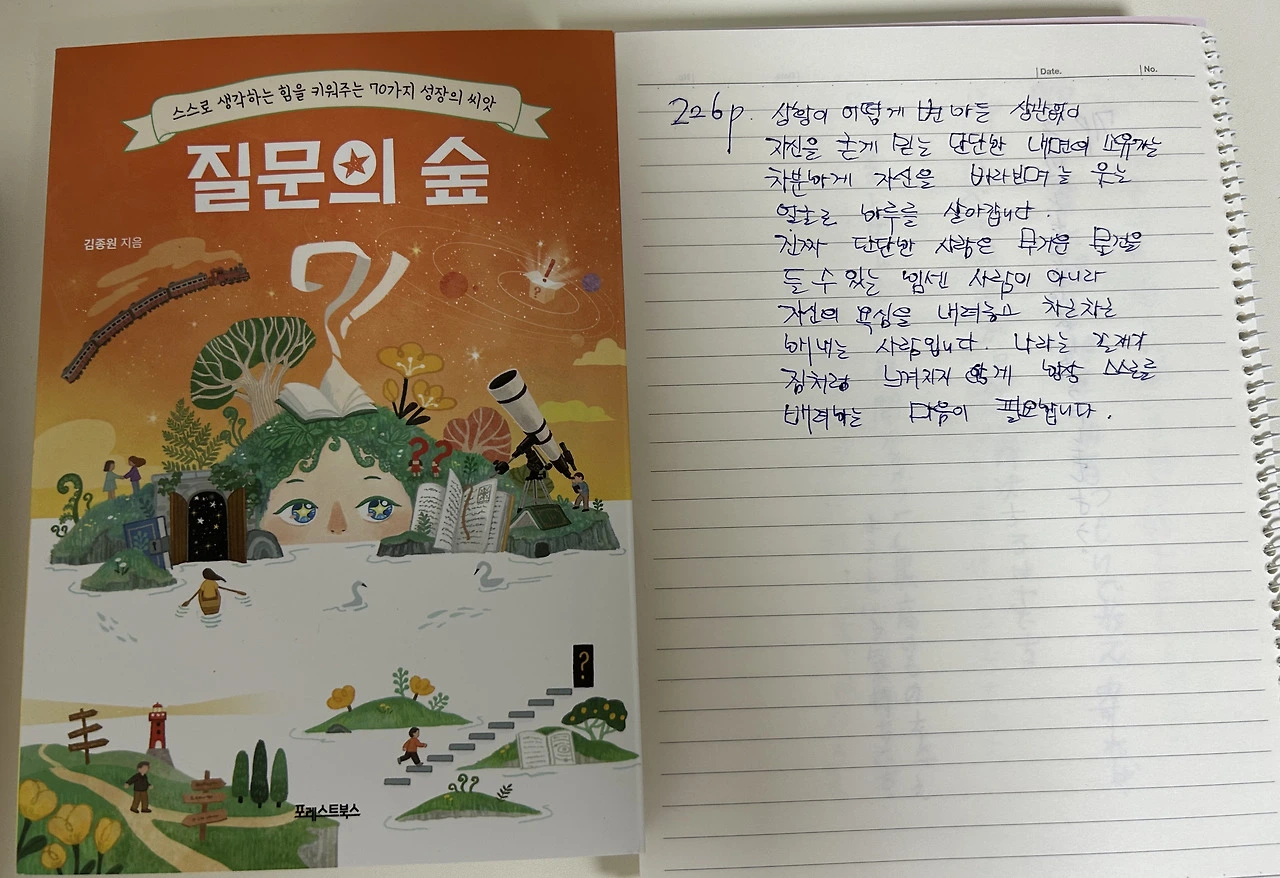 스스로 생각하는 힘을 키워주는 70가지 성장의 씨앗
질문의 숲
김종원 지음
포레스트북스
Date.
No.
226p. 상황이 어떻게 변하든 상관없이
자신을 굳게 믿는 단단한 내면의 소유자는
차분하게 자신을 바라보며 늘 웃는
얼굴로 하루를 살아갑니다.
진짜 단단한 사람은 무거운 물건을
들 수 있는 힘센 사람이 아니라
자신의 욕심을 내려놓고 차근차근
해내는 사람입니다. 나라는 존재가
짐처럼 느껴지지 않게 항상 스스로를
배려하는 마음이 필요합니다.